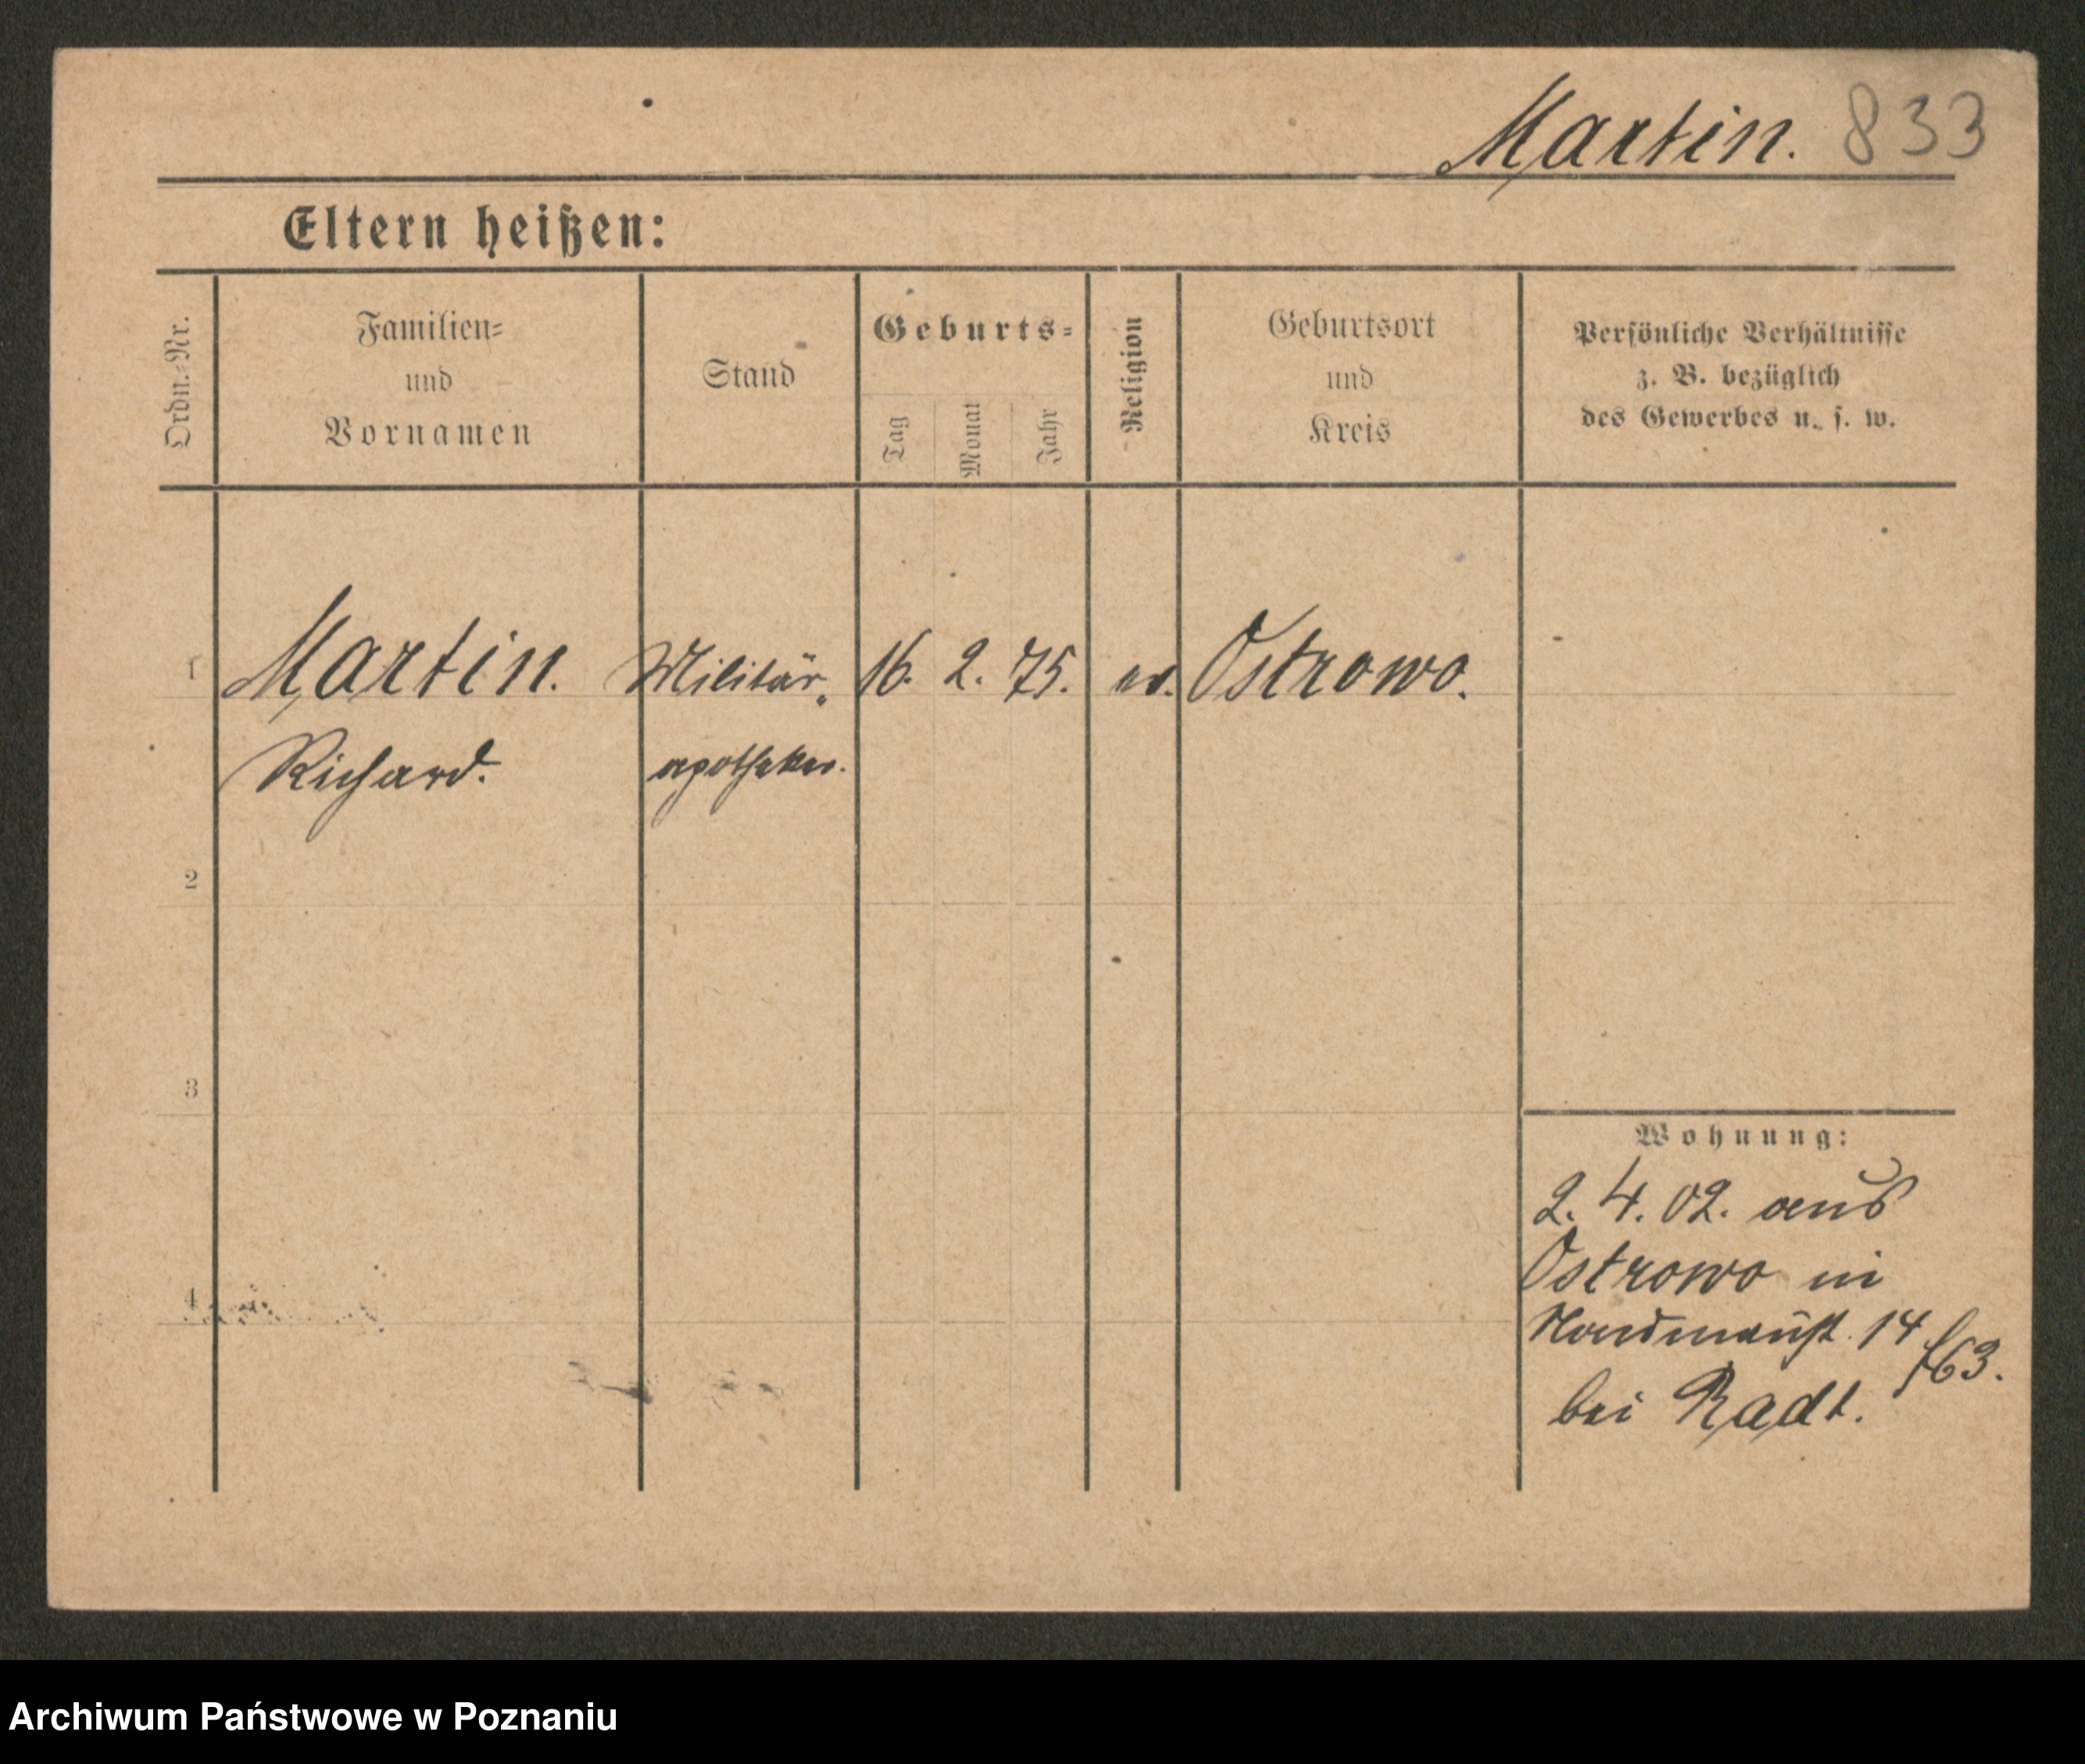 Martin. 833
Eltern heißen:
Ordn.-Nr.
Familien-
und
Vornamen
Stand
Geburts-
Tag
Monat
Jahr
Religion
Geburtsort
und
Kreis
Persönliche Verhältnisse
z. B. bezüglich
des Gewerbes u. s. w.
1 Martin. Militär- 16. 2. 75. ev. Ostrowo.
Richard. apotheker.
2
3
Wohnung:
2. 4. 02. aus
Ostrowo in
4
14
bei Radt.
Archiwum Państwowe w Poznaniu